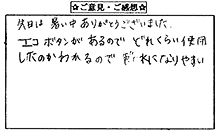 ☆ご意見・ご感想☆
今日は暑い中ありがとうございました。
エコボタンがあるのでどれくらい使用
したのかわかるので 節水になりやすい